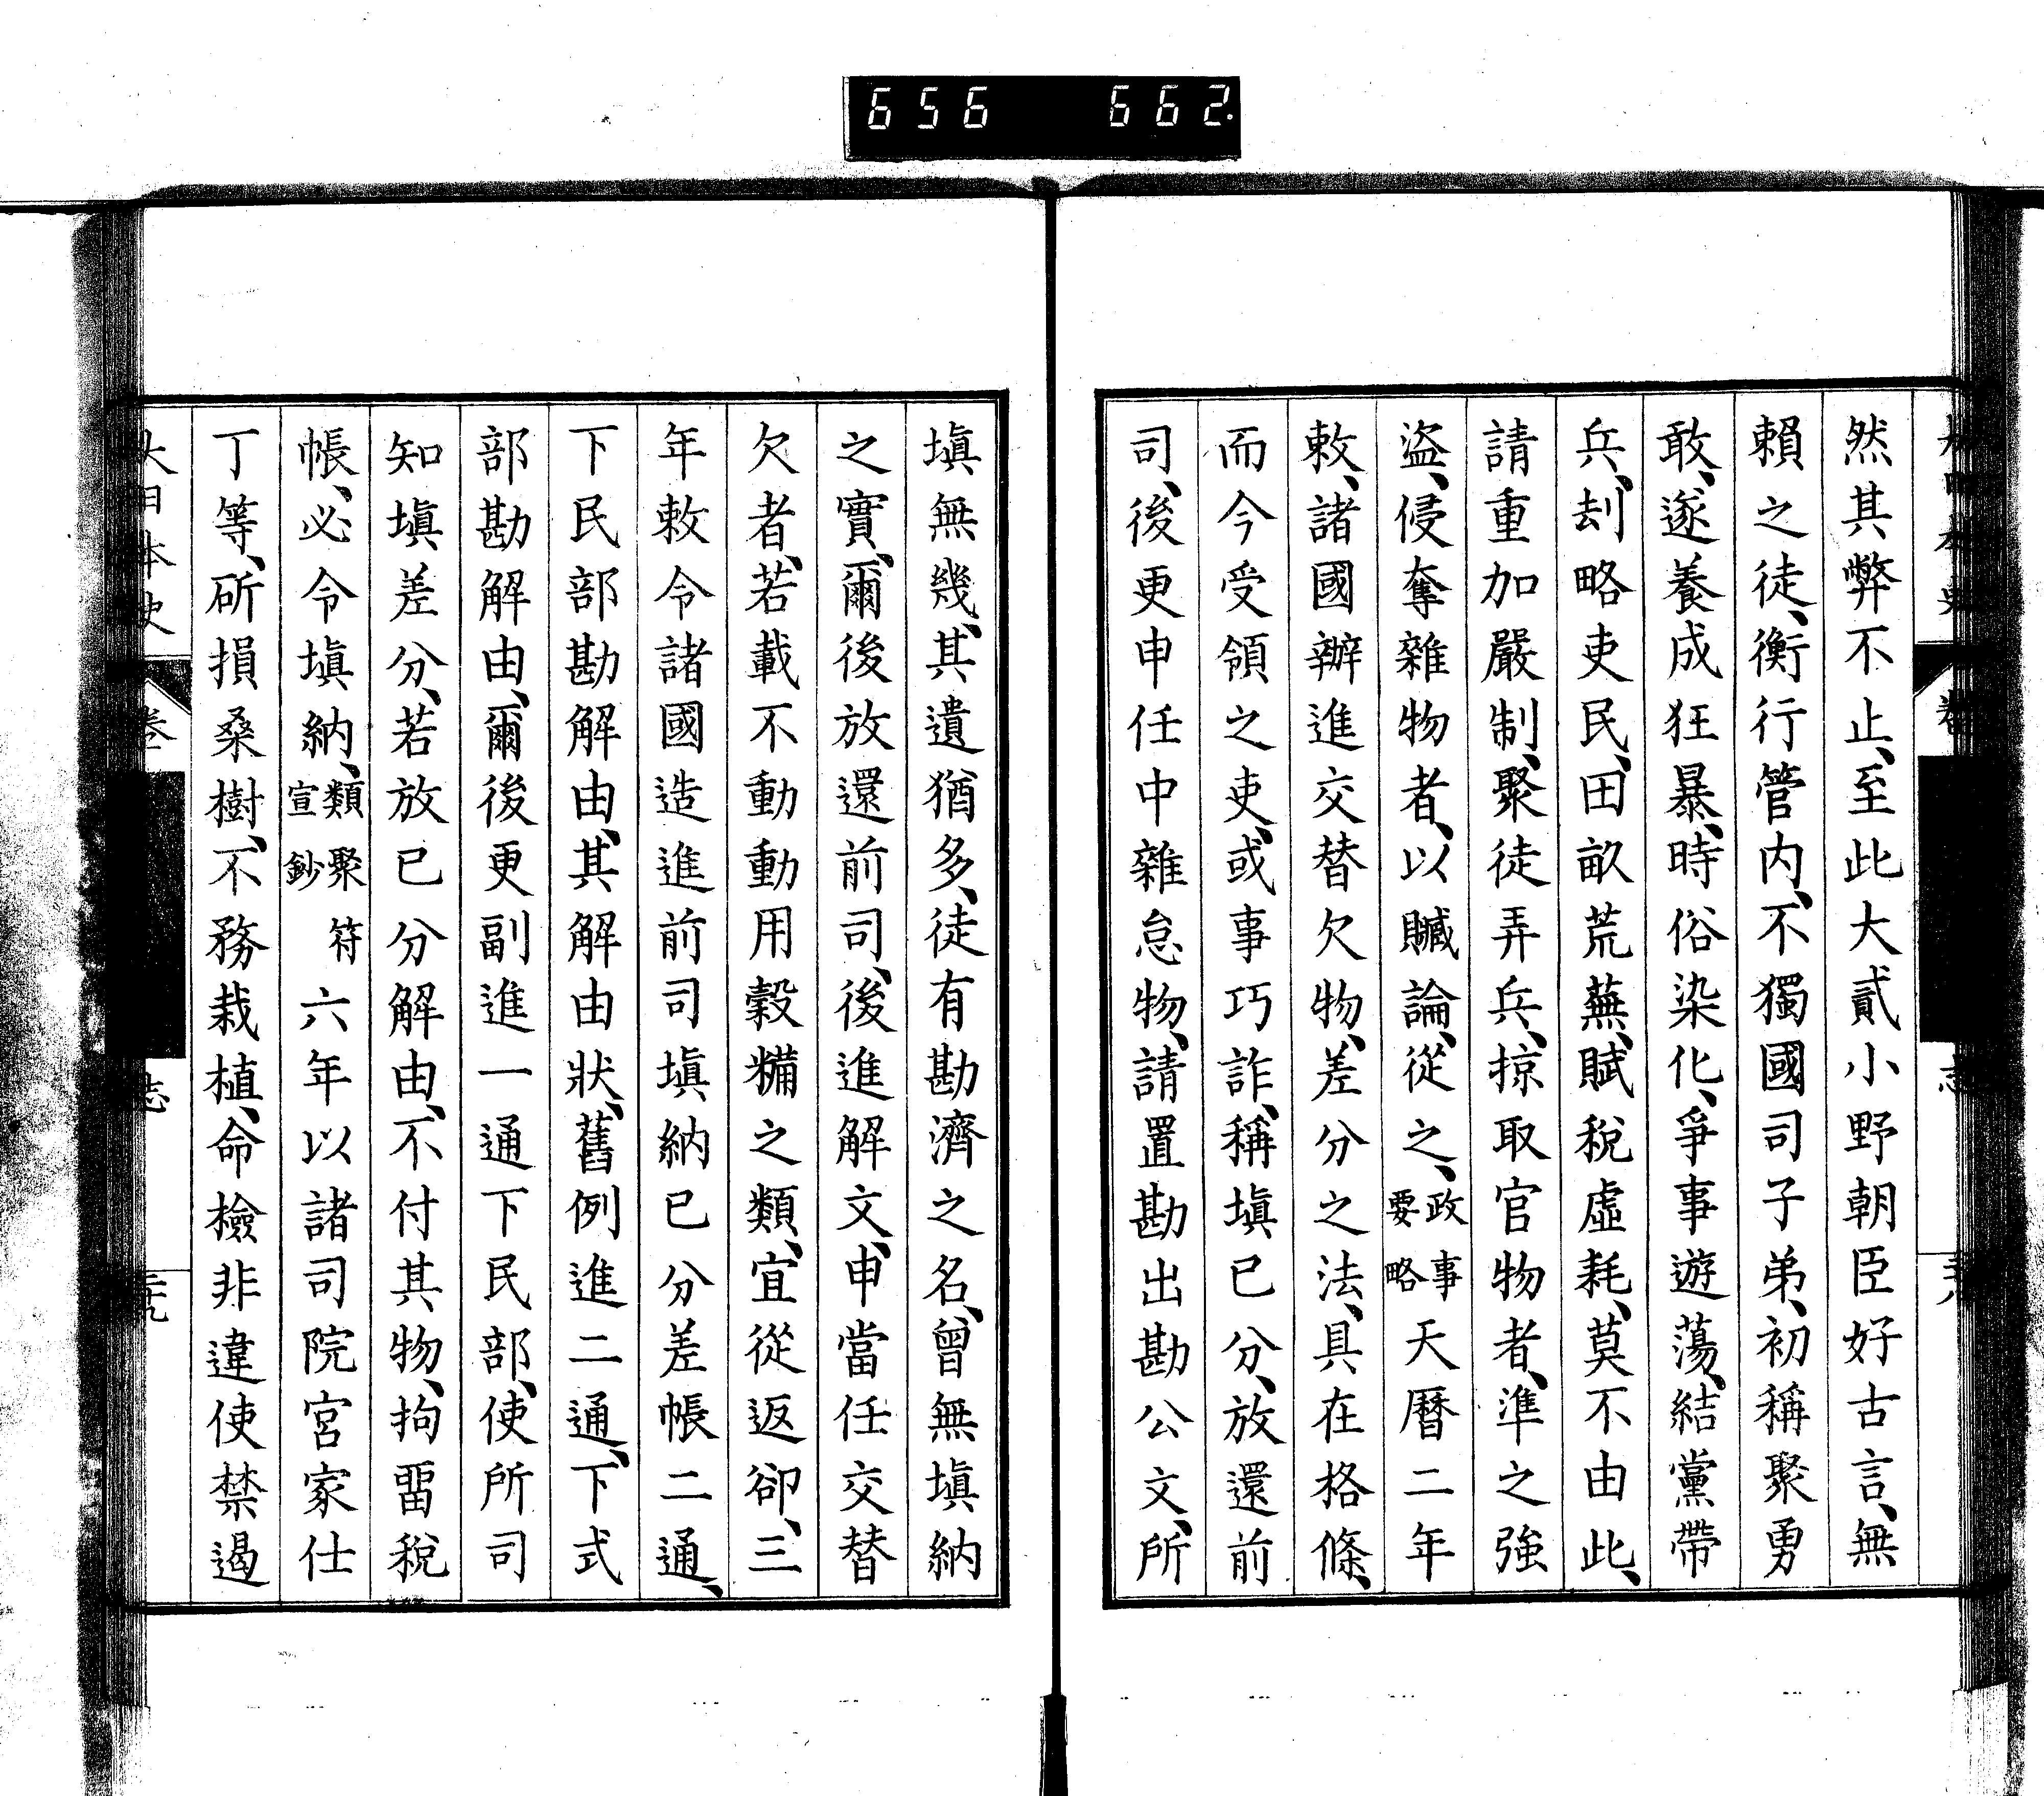 656 662.
然其弊不止、至此大貳小野朝臣好古言、無
賴之徒、衡行管内、不獨國司子弟、初稱聚勇
敢、遂養成狂暴、時俗染化、爭事遊蕩、結黨帶
兵、刦略吏民、田畝荒蕪、賦稅虛耗、莫不由此、
請重加嚴制、聚徒弄兵、掠取官物者、準之強
盜、侵奪雜物者、以贓論、從之、政事要略天曆二年
敕、諸國辦進交替欠物、差分之法、具在格條、
而今受領之吏、或事巧詐、稱塡已分、放還前
司、後更申任中雜怠物、請置勘出勘公文、所
塡無幾、其遺猶多、徒有勘濟之名、曾無塡納
之實、爾後放還前司、後進解文、申當任交替
欠者、若載不動動用穀糒之類、宜從返卻、三
年敕令諸國造進前司塡納已分差帳二通、
下民部勘解由、其解由狀、舊例進二通、下式
部勘解由、爾後更副進一通下民部、使所司
知塡差分、若放已分解由、不付其物、拘畱稅
帳、必令塡納、類聚符宣鈔六年以諸司院宮家仕
丁等、斫損桑樹、不務栽植、命檢非違使禁遏
大日本史
卷
志